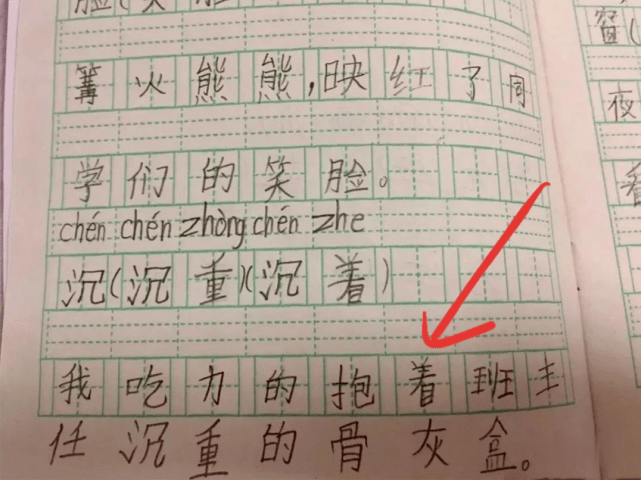 脸(笑脸
篝火熊熊,映红了同
学们的笑脸。
chén chén zhòng chén zhe
沉(沉重)(沉着)
我吃力的抱着班主
任沉重的骨灰盒。
窗(
夜
看